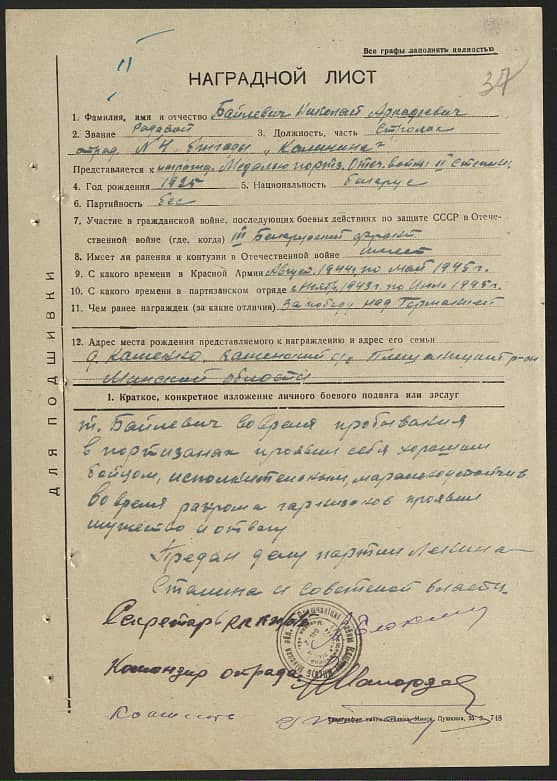 Все графы заполнять полностью
II
34
НАГРАДНОЙ ЛИСТ
1. Фамилия, имя и отчество Байлевич Николай Аркадьевич
2. Звание Рядовой 3. Должность, часть Стрелок
отряд. N 4 бригады „Калинина"
Представляется к награжд. Медалью партз. Отеч. войны II степени.
4. Год рождения 1925 5. Национальность белорус
6. Партийность бес
7. Участие в гражданской войне, последующих боевых действиях по защите СССР в Отече-
ственной войне (где, когда) III Белорусский фронт
8. Имеет ли ранения и контузии в Отечественной войне имеет
9. С какого времени в Красной Армии Август 1944г. по май 1945г.
10. С какого времени в партизанском отряде с Ноябр 1943г. по Июль
11. Чем ранее награжден (за какие отличия) За победу над Германией
12. Адрес места рождения представляемого к награждению и адрес его семьи
д. каменский с/с Плещеницкий р-он
Минской области
1. Краткое, конкретное изложение личного боевого подвига или заслуг
т. Байлевич во время пребывания
в партизанах проявил себя хорошим
бойцом, исполнительным, морально устойчив
Во время разгрома гарнизонов проявил
мужество и отвагу
Предан делу партии Ленина-
Сталина и советской власти.
Секретарь
Командир отряда
ДЛЯ ПОДШИВКИ
Типография Минск, Пушкина, 55 748